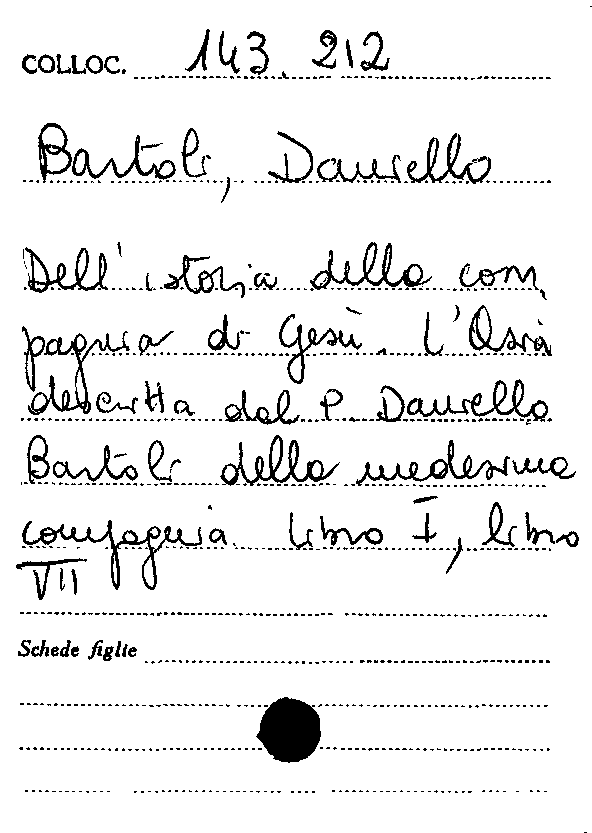 COLLOC. 143. 212
Bartoli, Daniello
Dell'istoria della com
pagnia di Gesù. L'Asia
descritta dal P. Daniello
Bartoli della medesima
compagnia. libro I, libro
VII
Schede figlie